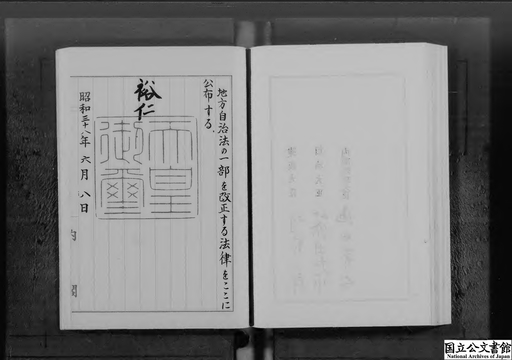 地方自治法の一部を改正する法律をここに
公布する。
裕仁
天皇
御璽
昭和三十八年六月八日
内閣
国立公文書館
National Archives of Japan